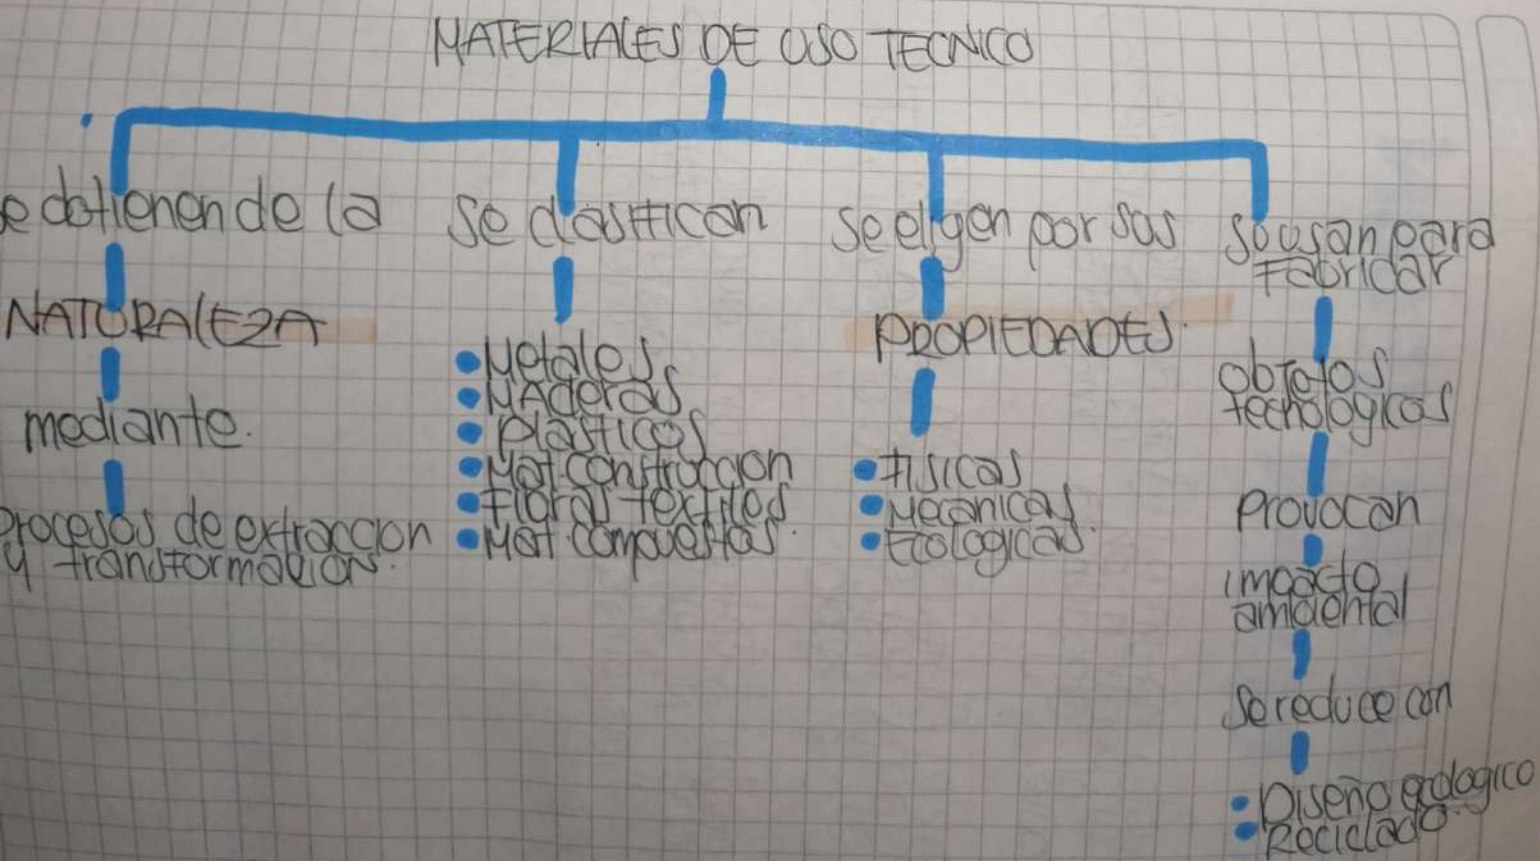 MATERIALES DE USO TECNICO
se obtienen de la
NATURALEZA
mediante.
Procesos de extraccion
y transformación.
se clasifican
• Metales
• MAderas
• plasticos
• Mat construccion
• Fibras textiles
• Mat. compuestas.
se eligen por sus
PROPIEDADES.
• Fisicas
• Mecanicas.
• Ecologicas.
se usan para
Fabricar
objetos
tecnologicos
Provocan
impacto
ambiental
Se reduce con
• Diseño ecologico
• Reciclado.